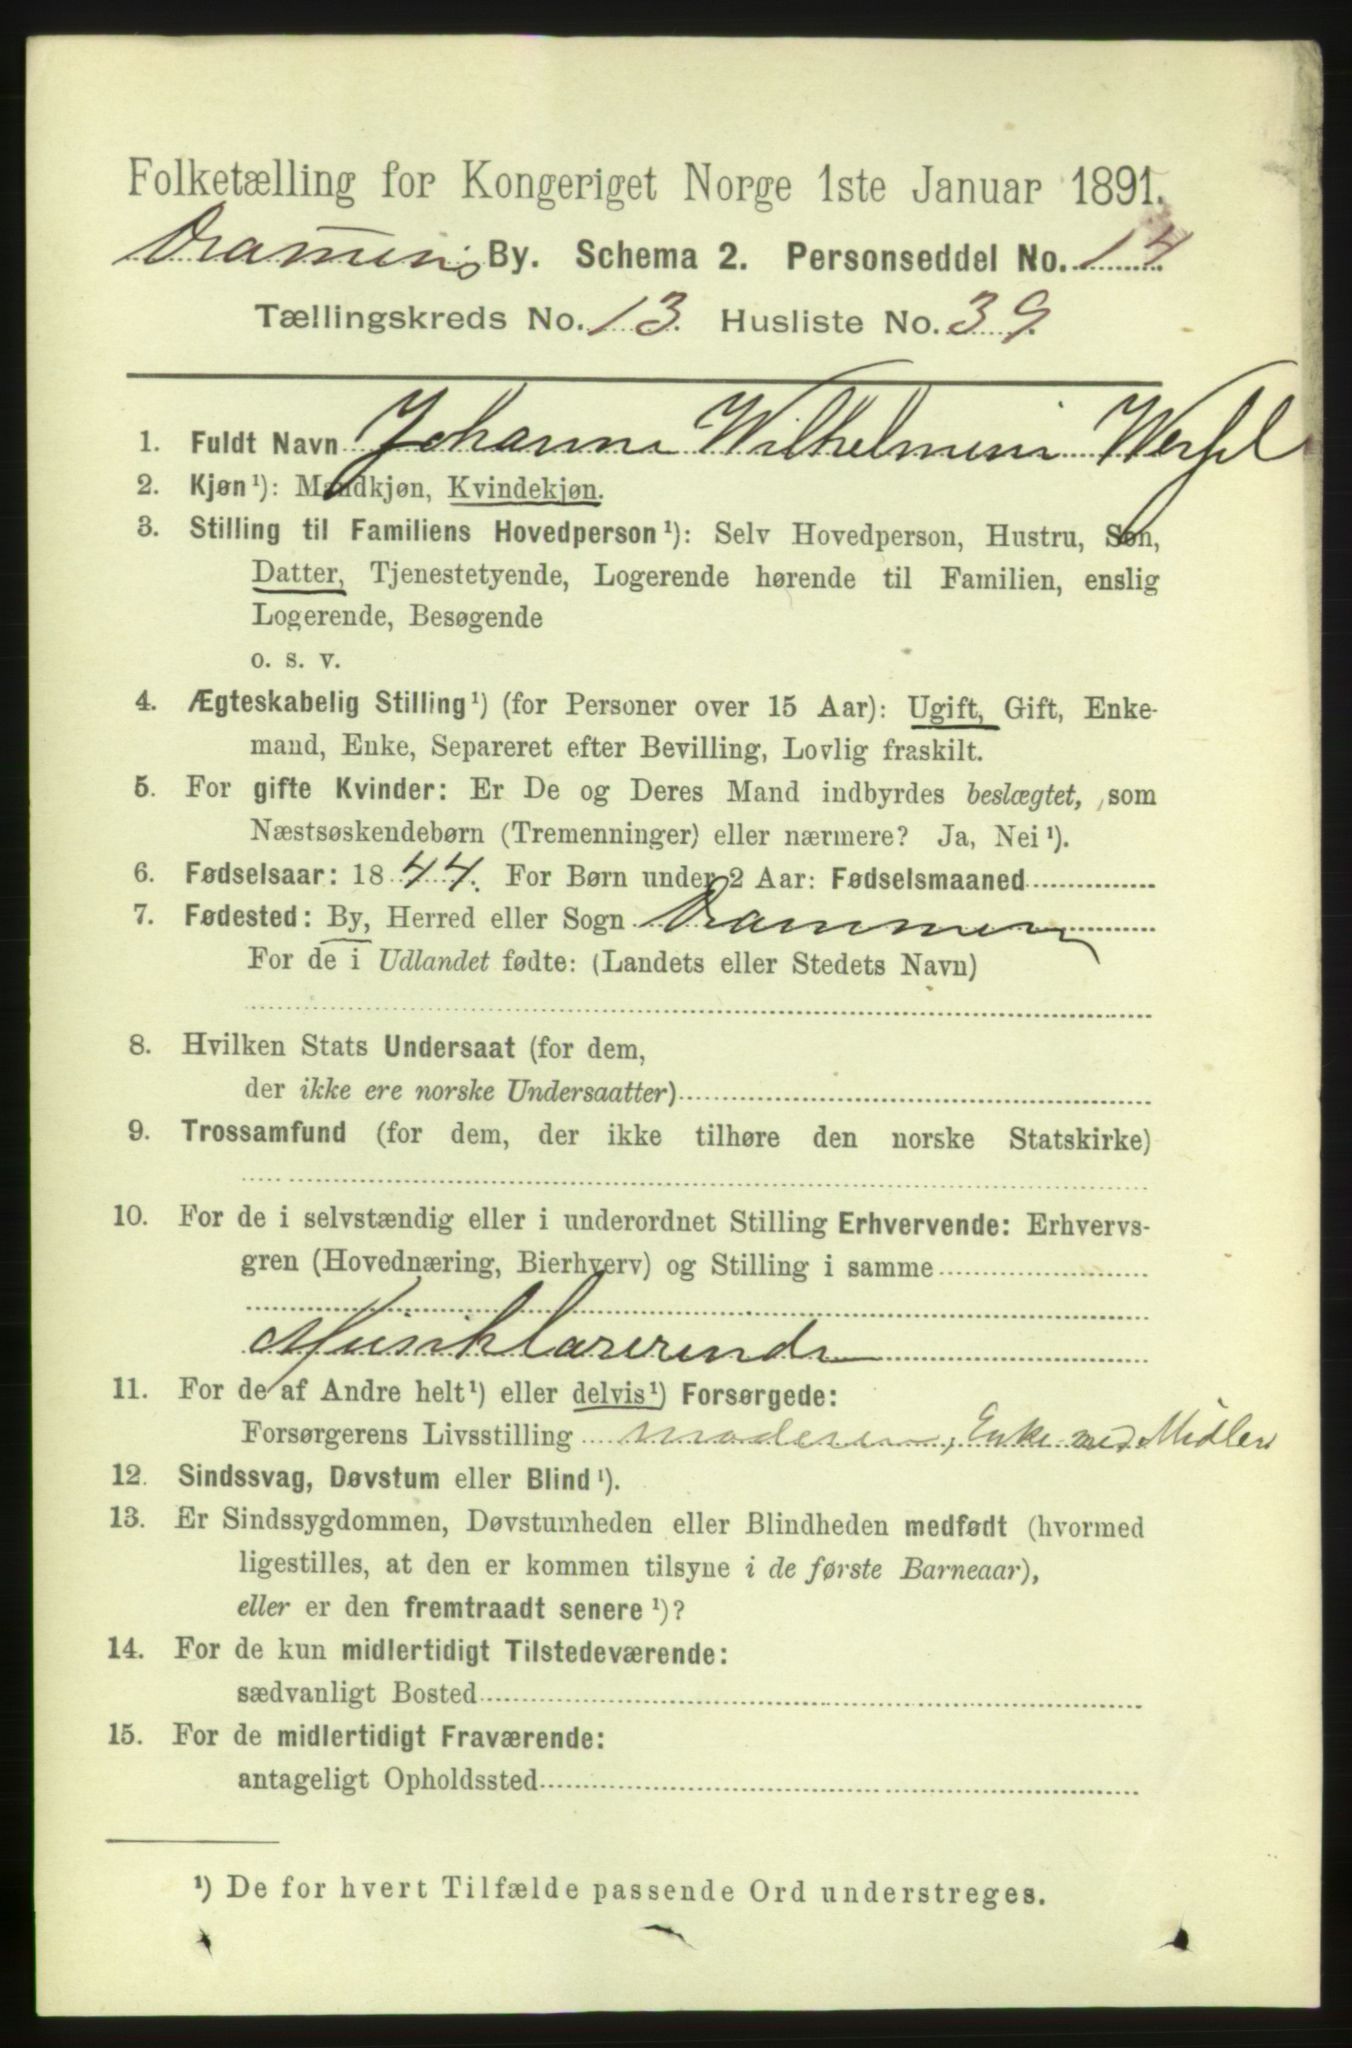 Folketælling for Kongeriget Norge 1ste Januar 1891.
Drammens By. Schema 2. Personseddel No. 14
Tællingskreds No. 13. Husliste No. 39.
1. Fuldt Navn Johanna Wilhelmine
2. Kjøn¹): Mandkjøn, Kvindekjøn.
3. Stilling til Familiens Hovedperson¹): Selv Hovedperson, Hustru, Søn,
Datter, Tjenestetyende, Logerende hørende til Familien, enslig
Logerende, Besøgende
o. s. v.
4. Ægteskabelig Stilling¹) (for Personer over 15 Aar): Ugift, Gift, Enke-
mand, Enke, Separeret efter Bevilling, Lovlig fraskilt.
5. For gifte Kvinder: Er De og Deres Mand indbyrdes beslægtet, som
Næstsøskendebørn (Tremenninger) eller nærmere? Ja, Nei¹).
6. Fødselsaar: 1844. For Børn under 2 Aar: Fødselsmaaned
7. Fødested: By, Herred eller Sogn Drammen
For de i Udlandet fødte: (Landets eller Stedets Navn)
8. Hvilken Stats Undersaat (for dem,
der ikke ere norske Undersaatter)
9. Trossamfund (for dem, der ikke tilhøre den norske Statskirke)
10. For de i selvstændig eller i underordnet Stilling Erhvervende: Erhvervs-
gren (Hovednæring, Bierhverv) og Stilling i samme
Musiklærerinde
11. For de af Andre helt¹) eller delvis¹) Forsørgede:
Forsørgerens Livsstilling moderen, Enke med Midler
12. Sindssvag, Døvstum eller Blind¹).
13. Er Sindssygdommen, Døvstumheden eller Blindheden medfødt (hvormed
ligestilles, at den er kommen tilsyne i de første Barneaar),
eller er den fremtraadt senere¹)?
14. For de kun midlertidigt Tilstedeværende:
sædvanligt Bosted
15. For de midlertidigt Fraværende:
antageligt Opholdssted
¹) De for hvert Tilfælde passende Ord understreges.